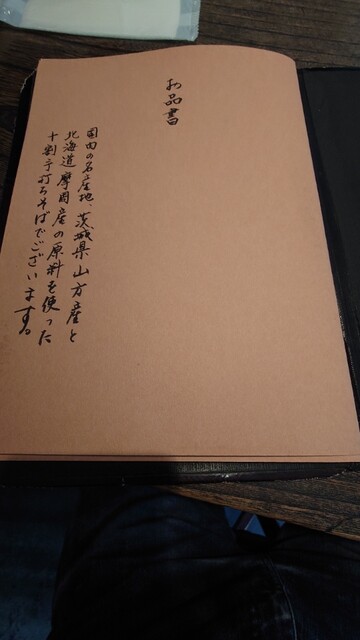 お品書
国内の名産地、茨城県山方産と
北海道摩周産の原料を使った
十割手打ちそばでございます。